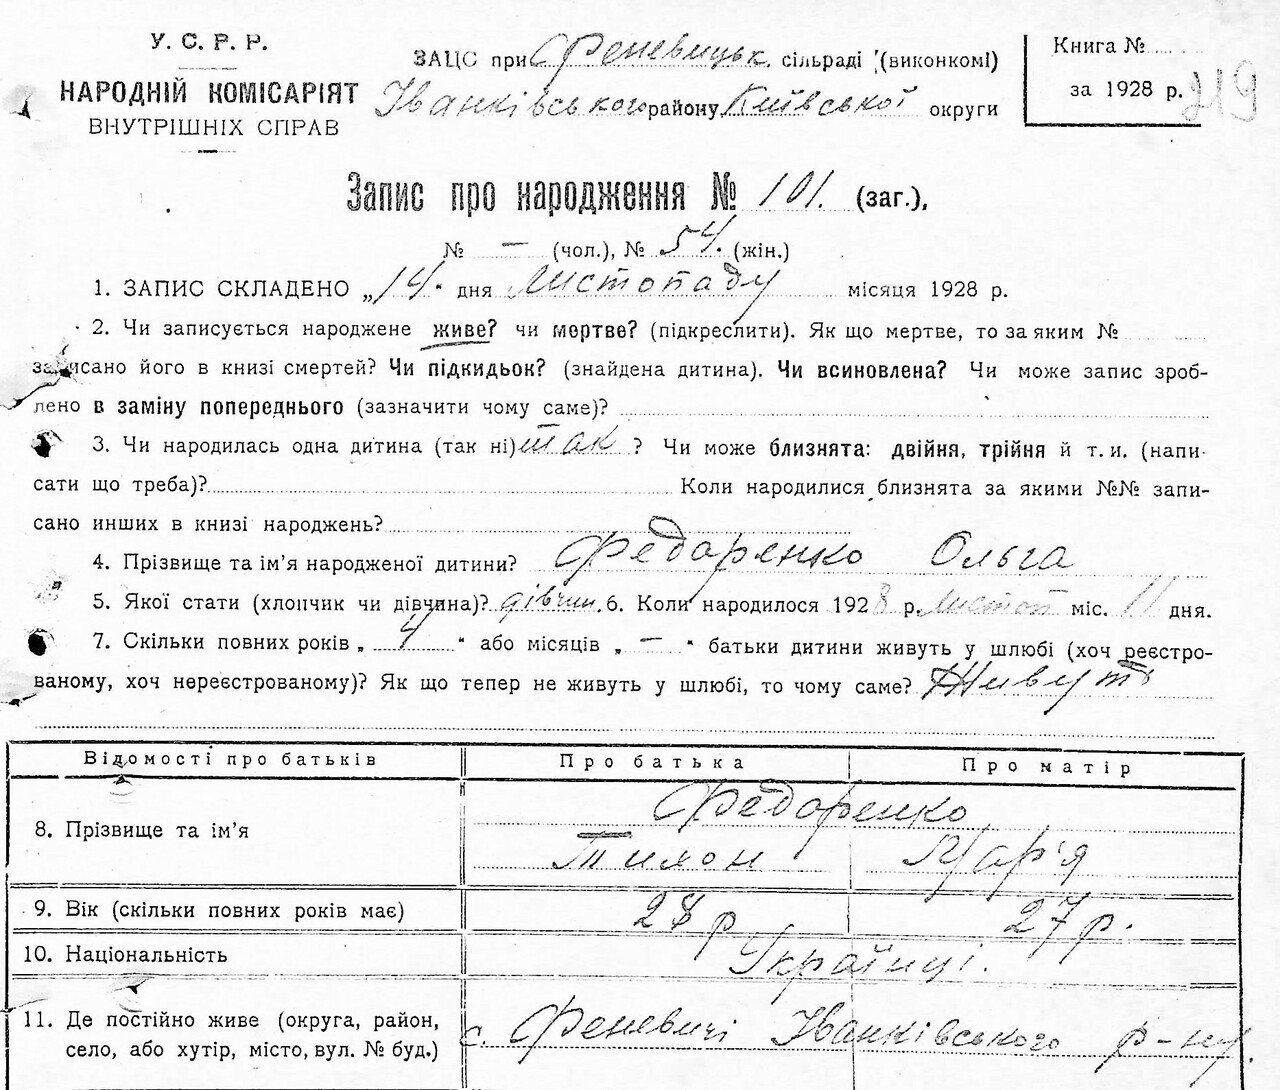 У. С. Р. Р.
НАРОДНІЙ КОМІСАРІЯТ
ВНУТРІШНІХ СПРАВ
ЗАЦС при Феневицьк. сільраді (виконкомі)
Іванківського району Київської округи
Книга №
за 1928 р.
219
Запис про народження № 101. (заг.).
№ — (чол.), № 54. (жін.)
1. ЗАПИС СКЛАДЕНО „14“ дня Листопаду місяця 1928 р.
2. Чи записується народжене живе? чи мертве? (підкреслити). Як що мертве, то за яким №
записано його в книзі смертей? Чи підкидьок? (знайдена дитина). Чи всиновлена? Чи може запис зроб-
лено в заміну попереднього (зазначити чому саме)?
3. Чи народилась одна дитина (так ні) так ? Чи може близнята: двійня, трійня й т. и. (напи-
сати що треба)? Коли народилися близнята за якими №№ запи-
сано инших в книзі народжень?
4. Прізвище та ім’я народженої дитини? Федоренко Ольга
5. Якої стати (хлопчик чи дівчина)? дівчин. 6. Коли народилося 1928 р. листоп міс. 11 дня.
7. Скільки повних років „ 4 “ або місяців „ — “ батьки дитини живуть у шлюбі (хоч реєстро-
ваному, хоч нереєстрованому)? Як що тепер не живуть у шлюбі, то чому саме? Живуть
Відомості про батьків Про батька Про матір
8. Прізвище та ім’я Федоренко
Тихон Мар'я
9. Вік (скільки повних років має) 28 р 27 р.
10. Національність Українці.
11. Де постійно живе (округа, район,
село, або хутір, місто, вул. № буд.) с. Феневичі Іванківського р-ну.